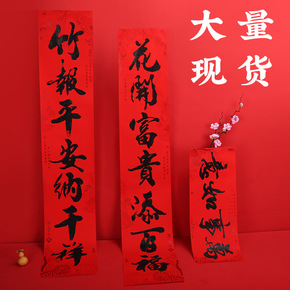 大量
现货
花開富貴添百福
竹報平安納千祥
萬事如意